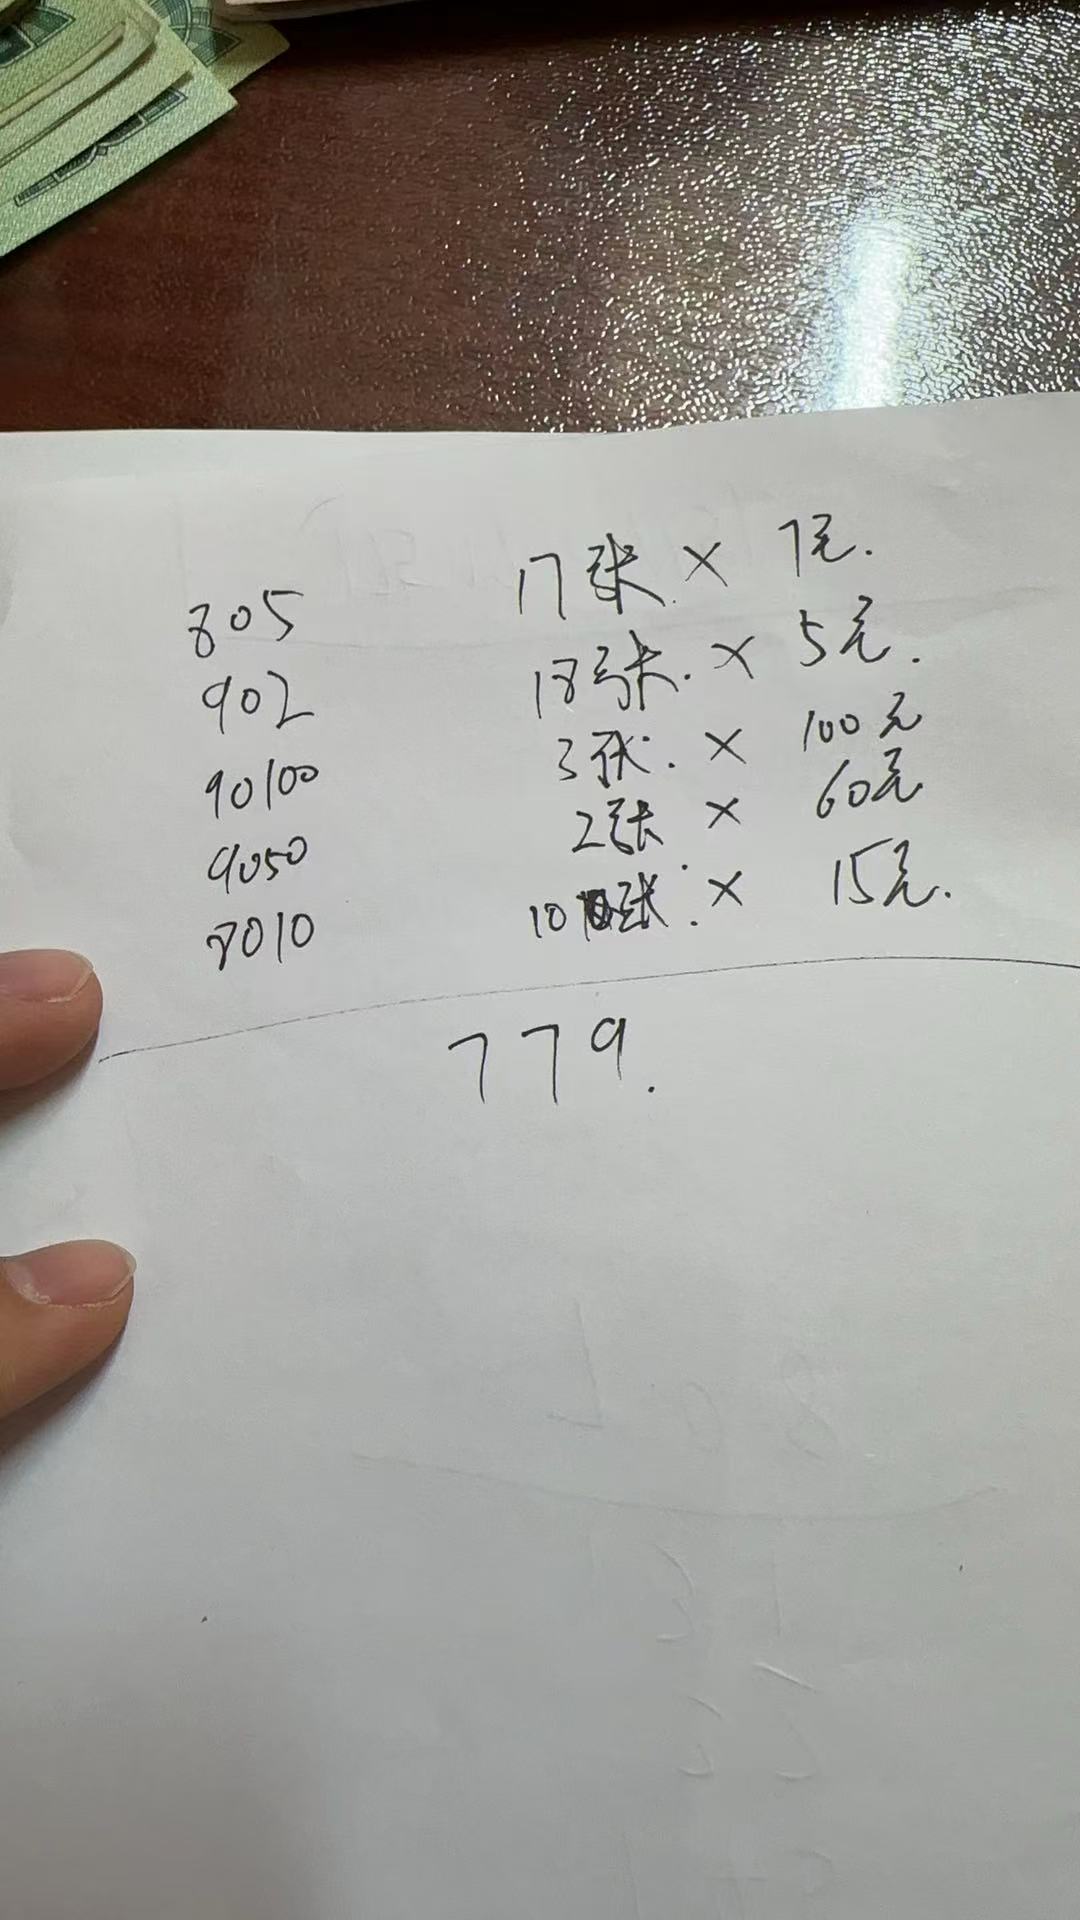 805 17张 × 7元.
902 18张. × 5元.
90100 3张. × 100元
9050 2张. × 60元
8010 10张. × 15元.
779.